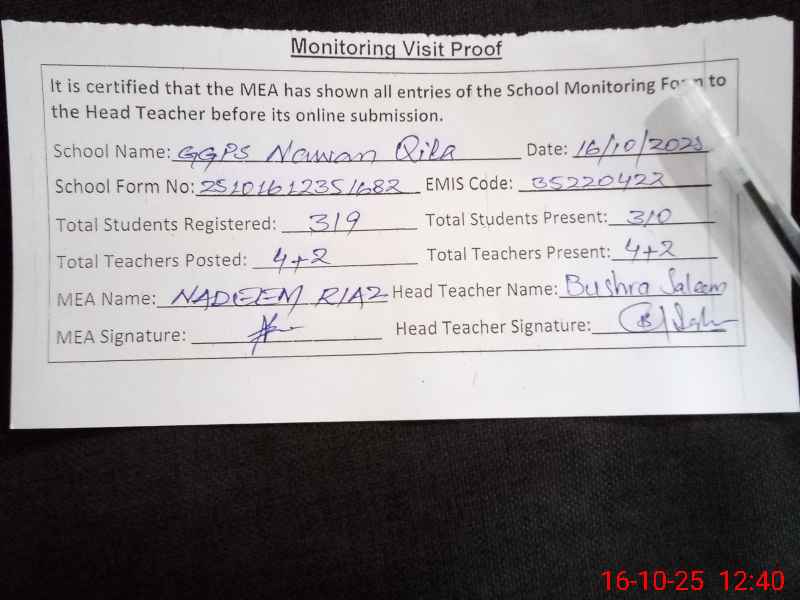 Monitoring Visit Proof
It is certified that the MEA has shown all entries of the School Monitoring Form to
the Head Teacher before its online submission.
School Name: GGPS Nawan Qila Date: 16/10/2025
School Form No: 25101612351682 EMIS Code: 35220422
Total Students Registered: 319 Total Students Present: 310
Total Teachers Posted: 4+2 Total Teachers Present: 4+2
MEA Name: NADEEM RIAZ Head Teacher Name: Bushra Saleem
MEA Signature: Head Teacher Signature:
16-10-25 12:40